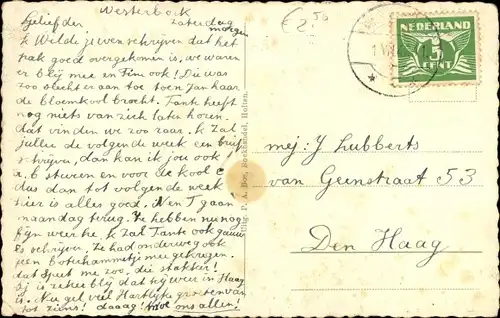 Westerbork
Geliefden zaterdag
morgen
k Wilde jullie even schrijven dat het
pak goed overgekomen is, we waren
er blij mee en Fini ook! Dii was
zoo slecht er aan toe toen Jan haar
de bloemkool bracht. Tante heeft
nog niets van zich laten hooren.
dat vinden we zoo raar. k Zal
jullie de volgende week een brief
schrijven, dan kan ik jou ook
a.b sturen en voor de kool
dus dan tot volgende week
hier is alles goed. N en T gaan
maandag terug. Ze hebben nu nog
fijn weer he. k Zal Tante ook gauw
es schrijven. Ze had onderweg ook
geen boterhammetje meegekregen.
dat speet me zoo, die stakker!
zij is zeker blij dat zij weer in Haag
is. Nu gel veel Hartelijke groeten van
tot ziens! daaag! ons allen!
€ 2,50
NEDERLAND
5
CENT
Uitg. P. A. Bos, Boekhandel, Holten.
mej: Y Lubberts
van Geenstraat 53
Den Haag